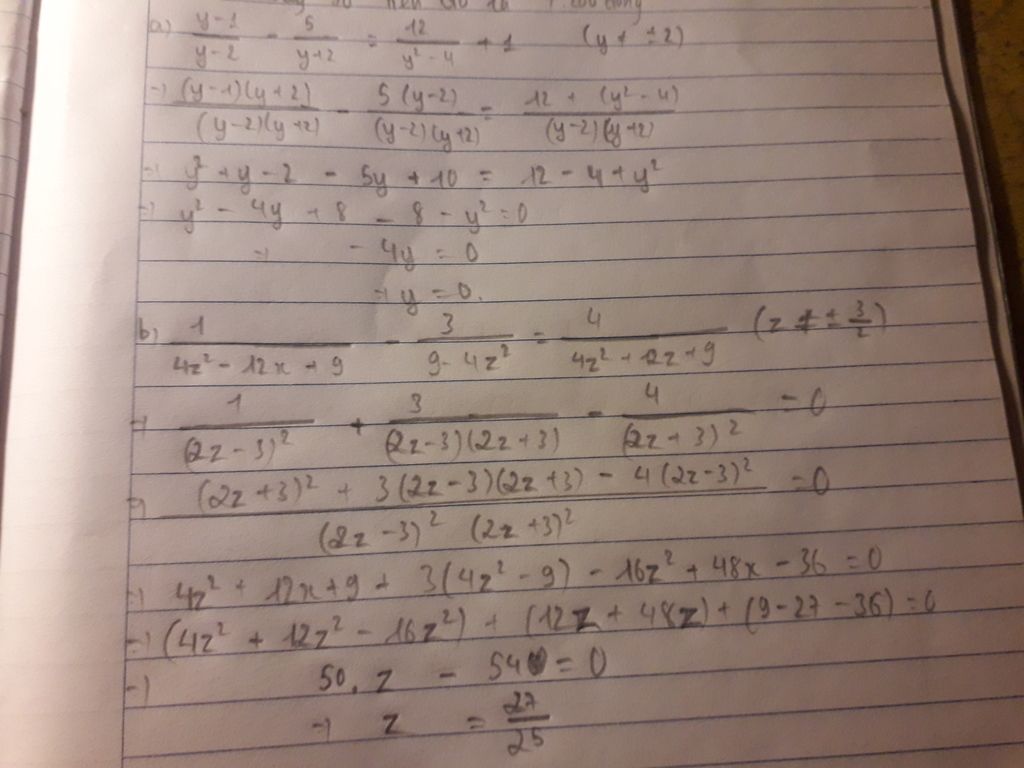 a) \frac{y-1}{y-2} - \frac{5}{y+2} = \frac{12}{y^2-4} + 1 (y ≠ ±2)
⇒ \frac{(y-1)(y+2)}{(y-2)(y+2)} - \frac{5(y-2)}{(y-2)(y+2)} = \frac{12 + (y^2-4)}{(y-2)(y+2)}
⇒ y² + y - 2 - 5y + 10 = 12 - 4 + y²
⇒ y² - 4y + 8 - 8 - y² = 0
⇒ - 4y = 0
⇒ y = 0.
b) \frac{1}{4z^2 - 12x + 9} - \frac{3}{9 - 4z^2} = \frac{4}{4z^2 + 12z + 9} (z ≠ ± \frac{3}{2})
⇒ \frac{1}{(2z-3)^2} + \frac{3}{(2z-3)(2z+3)} - \frac{4}{(2z+3)^2} = 0
⇒ \frac{(2z+3)^2 + 3(2z-3)(2z+3) - 4(2z-3)^2}{(2z-3)^2 (2z+3)^2} = 0
⇒ 4z² + 12x + 9 + 3(4z² - 9) - 16z² + 48x - 36 = 0
⇒ (4z² + 12z² - 16z²) + (12z + 48z) + (9 - 27 - 36) = 0
⇒ 50.z - 54 = 0
⇒ z = \frac{27}{25}